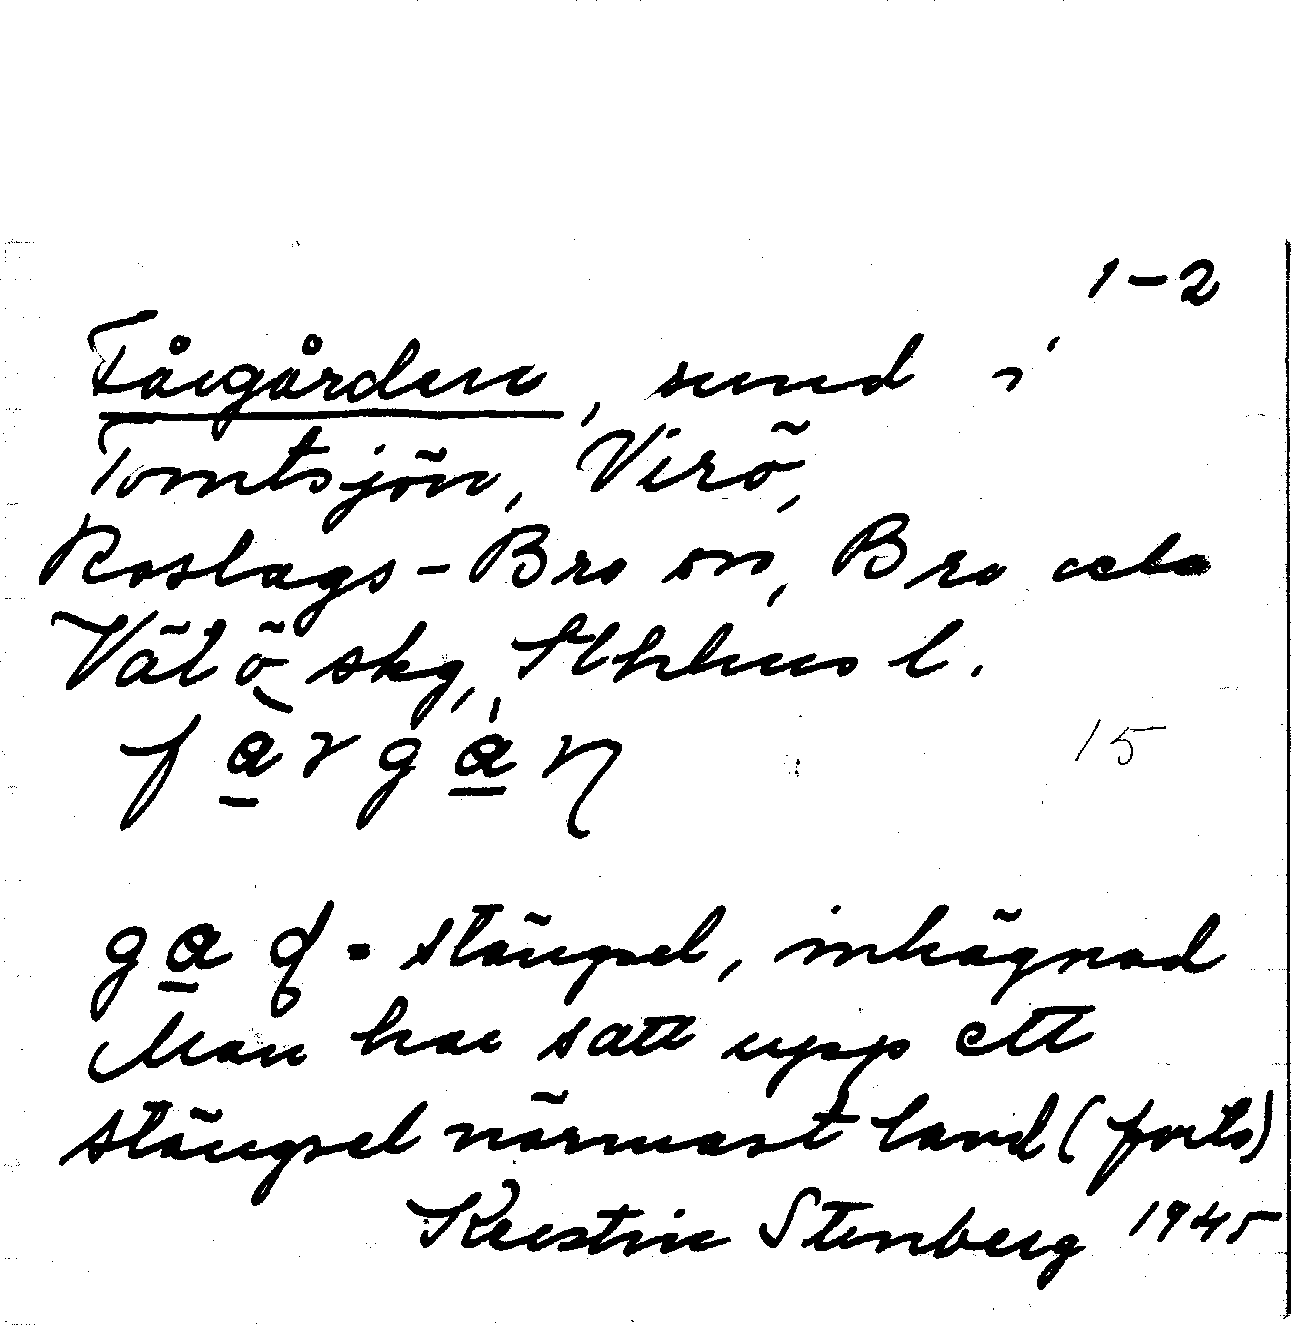 1-2
Fårgården, sund i
Tomtsjön, Virö,
Roslags-Bro sn, Bro och
Vätö skg, Sthlms l.
15
stängsel, inhägnad
Man har satt upp ett
stängsel närmast land (forts)
Kerstin Stenberg 1945